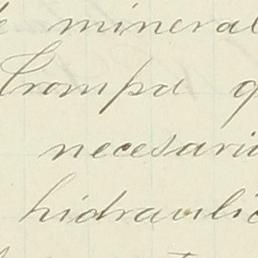 e mineral
Trompa q
necesari
hidraulic